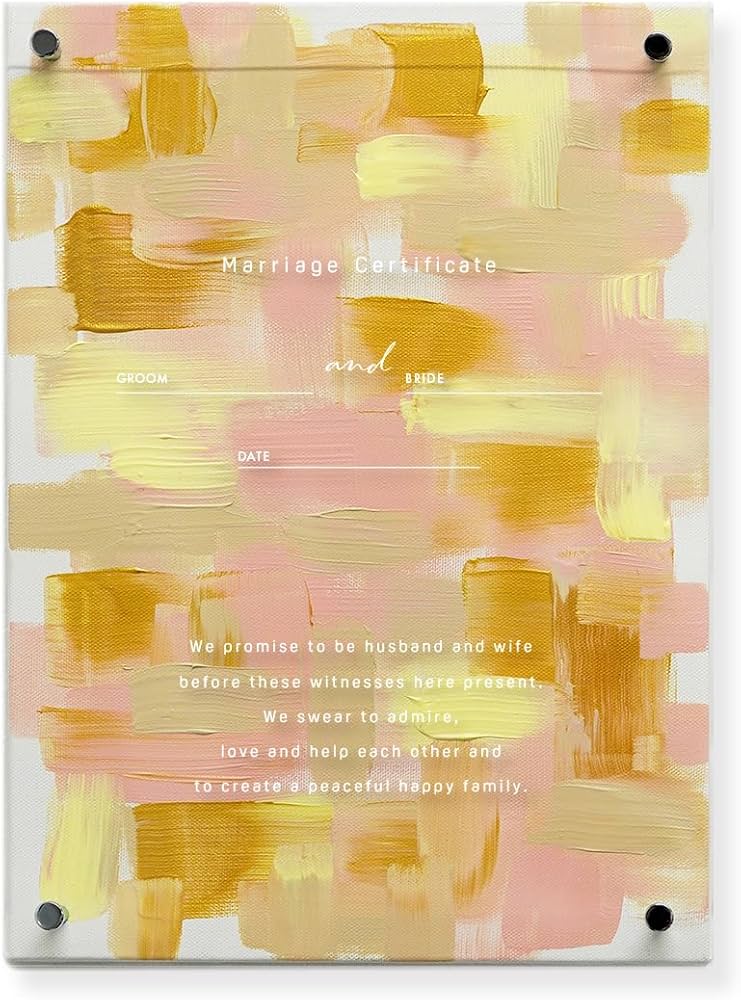 Marriage Certificate
and
GROOM BRIDE
DATE
We promise to be husband and wife
before these witnesses here present.
We swear to admire,
love and help each other and
to create a peaceful happy family.